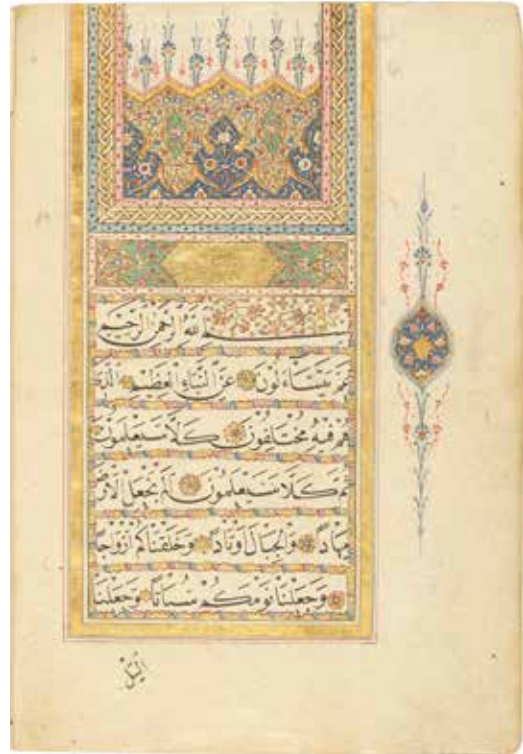 بِسْمِ اللّٰهِ الرَّحْمٰنِ الرَّحِيمِ
عَمَّ يَتَسَاءَلُونَ عَنِ النَّبَاِ الْعَظِيمِ الَّذِى
هُمْ فِيهِ مُخْتَلِفُونَ كَلَّا سَيَعْلَمُونَ
ثُمَّ كَلَّا سَيَعْلَمُونَ اَلَمْ نَجْعَلِ الْاَرْضَ
مِهَادًا وَالْجِبَالَ اَوْتَادًا وَخَلَقْنَاكُمْ اَزْوَاجًا
وَجَعَلْنَا نَوْمَكُمْ سُبَاتًا وَجَعَلْنَا
الَّيْلَ